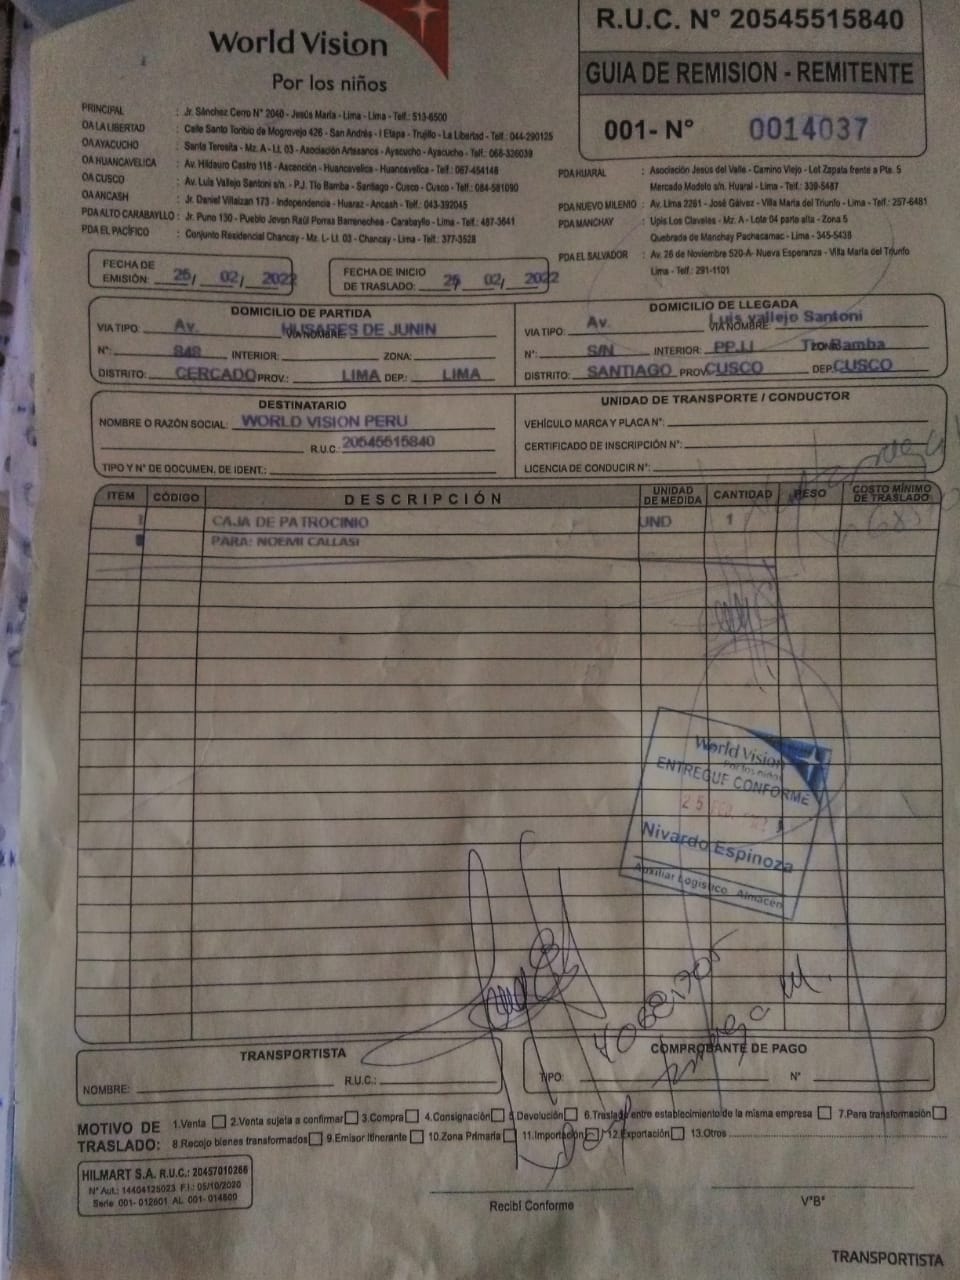 World Vision
Por los niños
R.U.C. N° 20545515840
GUIA DE REMISION - REMITENTE
001- N° 0014037
PRINCIPAL : Jr. Sánchez Cerro N° 2040 - Jesús María - Lima - Lima - Telf.: 513-6500
OA LA LIBERTAD : Calle Santo Toribio de Mogrovejo 426 - San Andrés - I Etapa - Trujillo - La Libertad - Telf.: 044-290125
OA AYACUCHO : Santa Teresita - Mz. A - Lt. 03 - Asociación Artesanos - Ayacucho - Ayacucho - Telf.: 066-326039
OA HUANCAVELICA : Av. Hildauro Castro 118 - Ascención - Huancavelica - Huancavelica - Telf.: 067-454148
OA CUSCO : Av. Luis Vallejo Santoni s/n. - P.J. Tío Bamba - Santiago - Cusco - Cusco - Telf.: 084-581090
OA ANCASH : Jr. Daniel Villaizan 173 - Independencia - Huaraz - Ancash - Telf.: 043-392045
PDA ALTO CARABAYLLO : Jr. Puno 130 - Pueblo Joven Raúl Porras Barrenechea - Carabayllo - Lima - Telf.: 487-3641
PDA EL PACÍFICO : Conjunto Residencial Chancay - Mz. L - Lt. 03 - Chancay - Lima - Telf.: 377-3528
PDA HUARAL : Asociación Jesus del Valle - Camino Viejo - Lot Zapata frente a Pta. 5
Mercado Modelo s/n. Huaral - Lima - Telf.: 339-5487
PDA NUEVO MILENIO : Av. Lima 2261 - José Gálvez - Villa María del Triunfo - Lima - Telf.: 257-6481
PDA MANCHAY : Upis Los Claveles - Mz. A - Lote 04 parte alta - Zona 5
Quebrada de Manchay Pachacamac - Lima - 345-5438
PDA EL SALVADOR : Av. 26 de Noviembre 520-A- Nueva Esperanza - Villa María del Triunfo
Lima - Telf.: 291-1101
FECHA DE EMISIÓN: 25/ 02 / 2022
FECHA DE INICIO DE TRASLADO: 25 / 02 / 2022
DOMICILIO DE PARTIDA
VIA TIPO: Av. VIA NOMBRE: HUSARES DE JUNIN
N°: 848 INTERIOR: ZONA:
DISTRITO: CERCADO PROV.: LIMA DEP: LIMA
DOMICILIO DE LLEGADA
VIA TIPO: Av. VIA NOMBRE Luis Vallejo Santoni
N°: S/N INTERIOR: PP.JJ ZONA: Tio Bamba
DISTRITO: SANTIAGO PROV. CUSCO DEP. CUSCO
DESTINATARIO
NOMBRE O RAZÓN SOCIAL: WORLD VISION PERU
R.U.C. 20545515840
TIPO Y N° DE DOCUMEN, DE IDENT.:
UNIDAD DE TRANSPORTE / CONDUCTOR
VEHÍCULO MARCA Y PLACA N°:
CERTIFICADO DE INSCRIPCIÓN N°:
LICENCIA DE CONDUCIR N°:
ITEM CÓDIGO DESCRIPCIÓN UNIDAD DE MEDIDA CANTIDAD PESO COSTO MÍNIMO DE TRASLADO
1 CAJA DE PATROCINIO UND 1
PARA: NOEMI CALLASI
World Vision
Por los niños
ENTREGUE CONFORME
25 FEB.
Nivardo Espinoza
Auxiliar Logístico Almacén
TRANSPORTISTA
NOMBRE: R.U.C.:
COMPROBANTE DE PAGO
TIPO: N°
MOTIVO DE TRASLADO:
1.Venta 2.Venta sujeta a confirmar 3.Compra 4.Consignación 5.Devolución 6.Traslado entre establecimiento de la misma empresa 7.Para transformación
8.Recojo bienes transformados 9.Emisor Itinerante 10.Zona Primaria 11.Importación 12.Exportación 13.Otros
HILMART S.A. R.U.C.: 20457010266
N° Aut.: 14404125023 F.I.: 05/10/2020
Serie 001- 012601 AL 001- 014600
Recibí Conforme
V°B°
TRANSPORTISTA